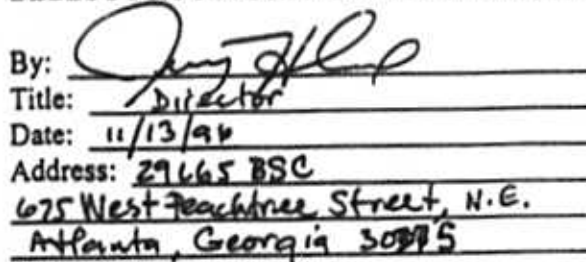 By:
Title: Director
Date: 11/13/96
Address: 29665 BSC
675 West Peachtree Street, N.E.
Atlanta, Georgia